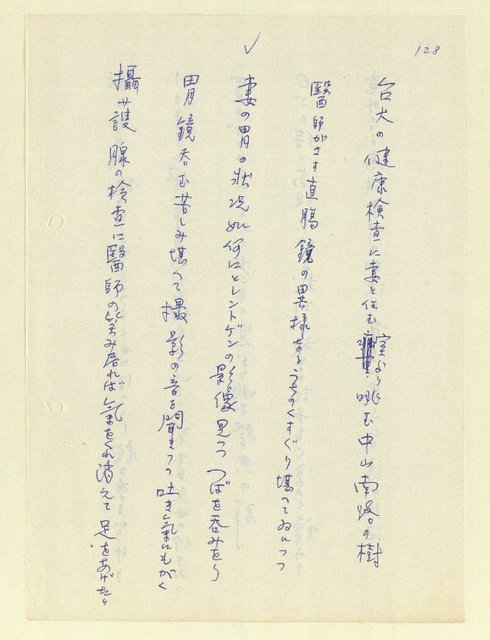 128
台大の健康検査に妻と住む室ならん眺む中山南路の樹
醫師がさす直腸鏡の異様なるうちのくすぐり堪へてゐにつつ
妻の胃の状況如何にとレントゲンの影像見つつつばを呑みをり
胃鏡呑む苦しみ堪へて撮影の音を聞きつつ吐き氣にもがく
攝護腺の検査に醫師の笑み居れば氣をくれ消えて足をあげたり